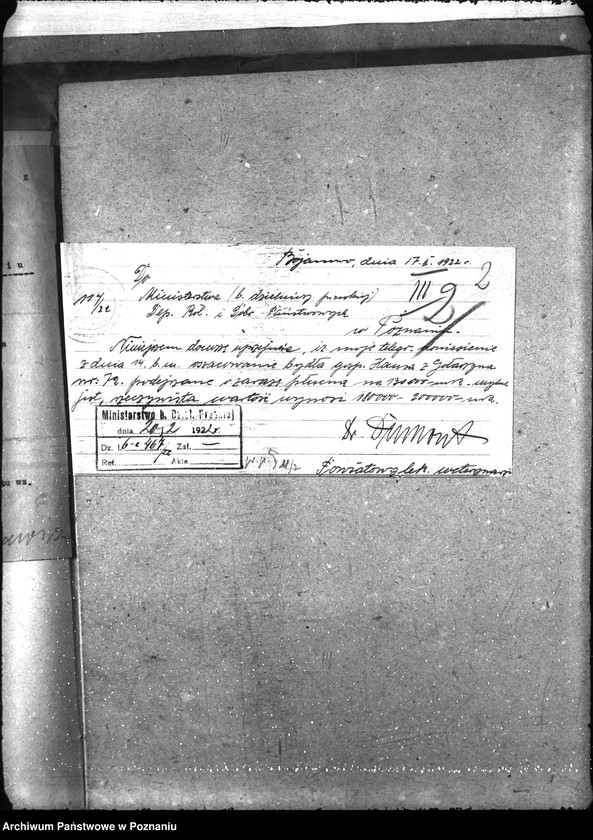 Bojanowo, dnia 17.II. 1922 r.
2
Do
117/22
Ministerstwa (b. dzielnicy pruskiej)
III
Dep. Rol. i Dóbr Państwowych
w Poznaniu.
Niniejszem donoszę uprzejmie, iż moje telegr. doniesienie
z dnia 14. b.m. oszacowanie bydła gosp. Hausa z Gołaszyna
nr. 72. podejrzane o zarazę płucną na 120000 mrk. mylne
jest, rzeczywista wartość wynosi 180000 - 200000 mrk.
Ministerstwo b. Dziel. Pruskiej
dnia 20/2 1922 r.
Dz. 6-c 467/22 Zał. —
Ref. Akta
Dr
Powiatowy lek. weterynarji
i u
ws.
Archiwum Państwowe w Poznaniu